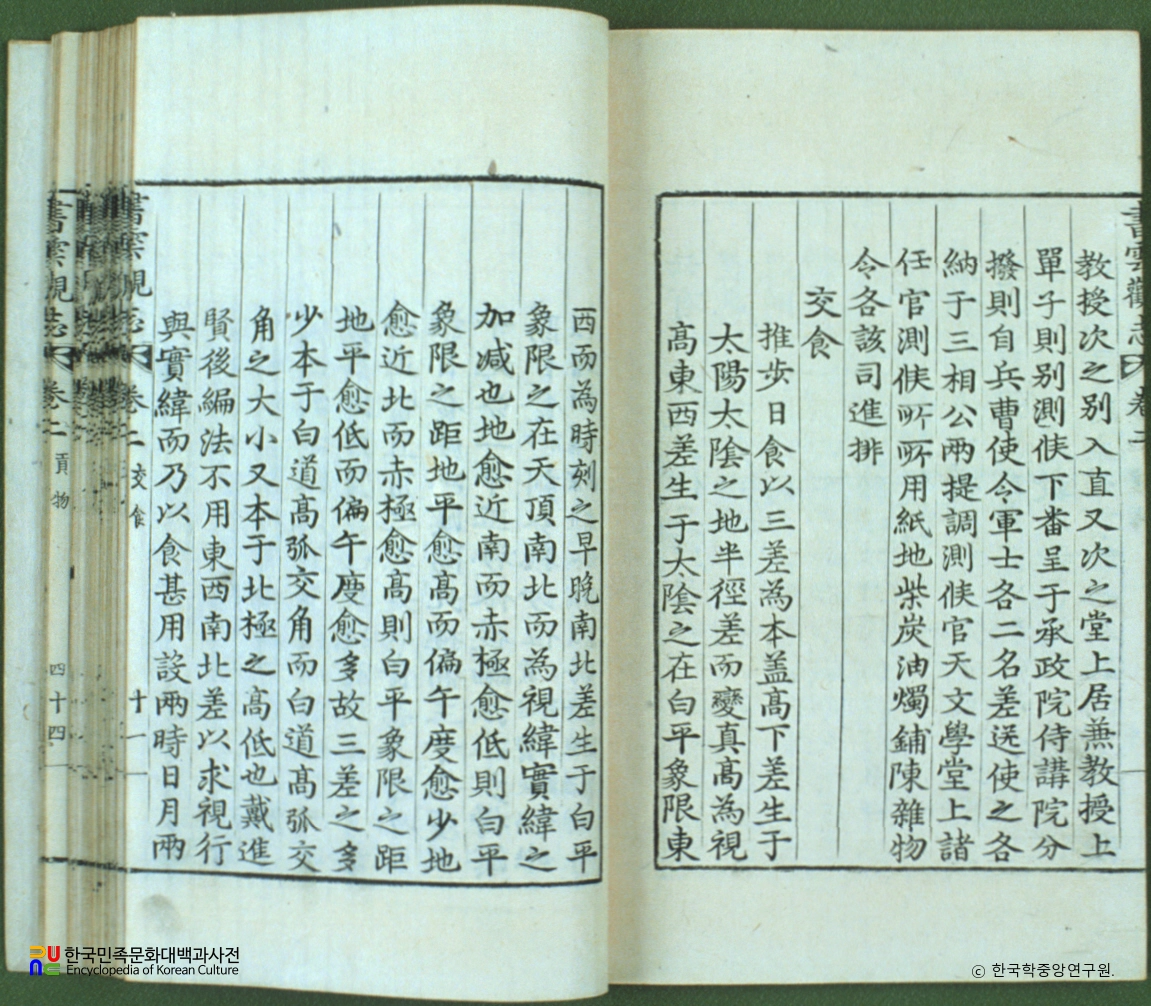 書雲觀志 卷二
教授次之別入直又次之堂上居兼教授上
單子則別測候下番呈于承政院侍講院分
撥則自兵曹使令軍士各二名差送使之各
納于三相公兩提調測候官天文學堂上諸
任官測候所所用紙地柴炭油燭鋪陳雜物
令各該司進排
交食
推步日食以三差為本盖高下差生于
太陽太陰之地半徑差而變真高為視
高東西差生于太陰之在白平象限東
西而為時刻之早晚南北差生于白平
象限之在天頂南北而為視緯實緯之
加减也地愈近南而赤極愈低則白平
象限之距地平愈高而偏午度愈少地
愈近北而赤極愈高則白平象限之距
地平愈低而偏午度愈多故三差之多
少本于白道高弧交角而白道高弧交
角之大小又本于北極之高低也戴進
賢後編法不用東西南北差以求視行
與實緯而乃以食甚用設兩時日月兩
書雲觀志 卷二 交食 十一
書雲觀志 卷二 貢物 四十四
한국민족문화대백과사전
Encyclopedia of Korean Culture
© 한국학중앙연구원.